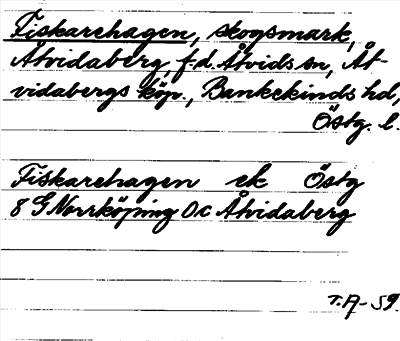 Fiskarehagen, skogsmark,
Åtvidaberg, f.d. Åtvids sn, Åt-
vidabergs köp., Bankekinds hd,
Östg. l.
Fiskarehagen ek Östg
8 G Norrköping Oc Åtvidaberg
T.A-59.